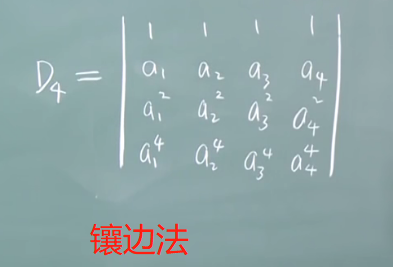 1 1 1 1
D₄ = a₁ a₂ a₃ a₄
a₁² a₂² a₃² a₄²
a₁⁴ a₂⁴ a₃⁴ a₄⁴
镶边法